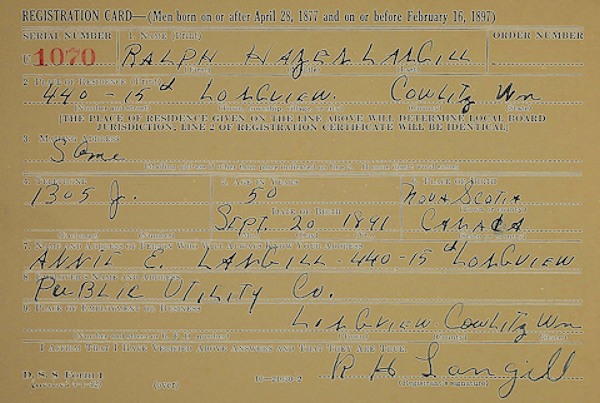 REGISTRATION CARD—(Men born on or after April 28, 1877 and on or before February 16, 1897)
SERIAL NUMBER 1. NAME (Print) ORDER NUMBER
U 1070 RALPH HAZEN LANGILL
(First) (Last)
2. PLACE OF RESIDENCE (Print)
440-15th LONGVIEW. COWLITZ Wn
(Number and street) (Town, township, village, or city) (County) (State)
[THE PLACE OF RESIDENCE GIVEN ON THE LINE ABOVE WILL DETERMINE LOCAL BOARD
JURISDICTION; LINE 2 OF REGISTRATION CERTIFICATE WILL BE IDENTICAL]
3. MAILING ADDRESS
Same
4. TELEPHONE 5. AGE IN YEARS 6. PLACE OF BIRTH
1305 J. 50 NOVA SCOTIA
DATE OF BIRTH (Town or county)
SEPT. 20 1891 CANADA
(Exchange) (Number)
7. NAME AND ADDRESS OF PERSON WHO WILL ALWAYS KNOW YOUR ADDRESS
ANNIE E. LANGILL-440-15th LONGVIEW
8. EMPLOYER'S NAME AND ADDRESS
PUBLIC UTILITY CO.
9. PLACE OF EMPLOYMENT OR BUSINESS
LONGVIEW. COWLITZ Wn
(Number and street or R. F. D. number) (Town) (County) (State)
I AFFIRM THAT I HAVE VERIFIED ABOVE ANSWERS AND THAT THEY ARE TRUE.
R H Langill
D. S. S. Form 1 (Registrant's signature)
(over)